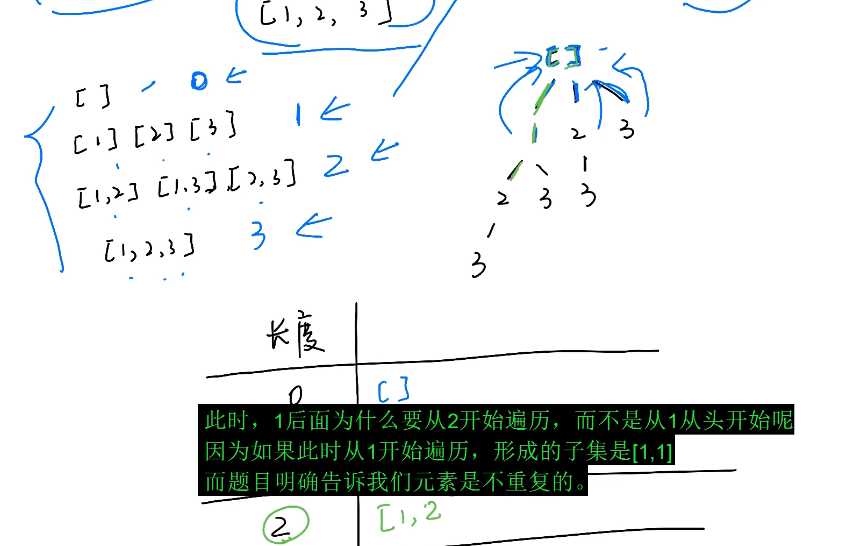 [1, 2, 3]
[ ] 0
[1] [2] [3] 1
[1,2] [1,3], [2,3] 2
[1,2,3] 3
[ ]
1 2 3
2 3 3
3
长度
0 [ ]
此时，1后面为什么要从2开始遍历，而不是从1从头开始呢
因为如果此时从1开始遍历，形成的子集是[1,1]
而题目明确告诉我们元素是不重复的。
2 [1,2